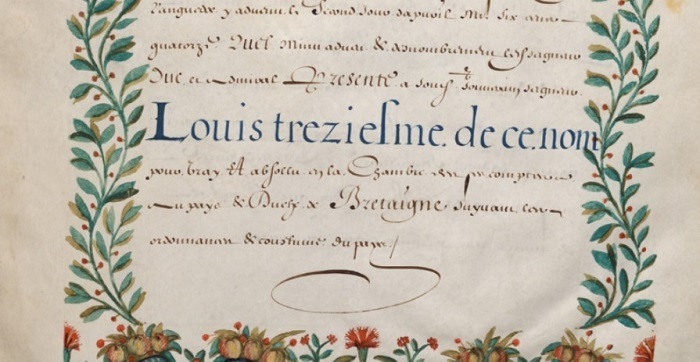 y advenu le second jour d'apvril Mil six cens
quatorze Quel mmu adveu & denombrement led. seigneur
Duc et Admiral Presente a sond. souverain seigneur
Louis treziesme. de ce. nom
pour vray Et absollu en la Chambre des comptes
au pays & Duché de Bretaigne suyvant les
ordonnances & coustume du pays